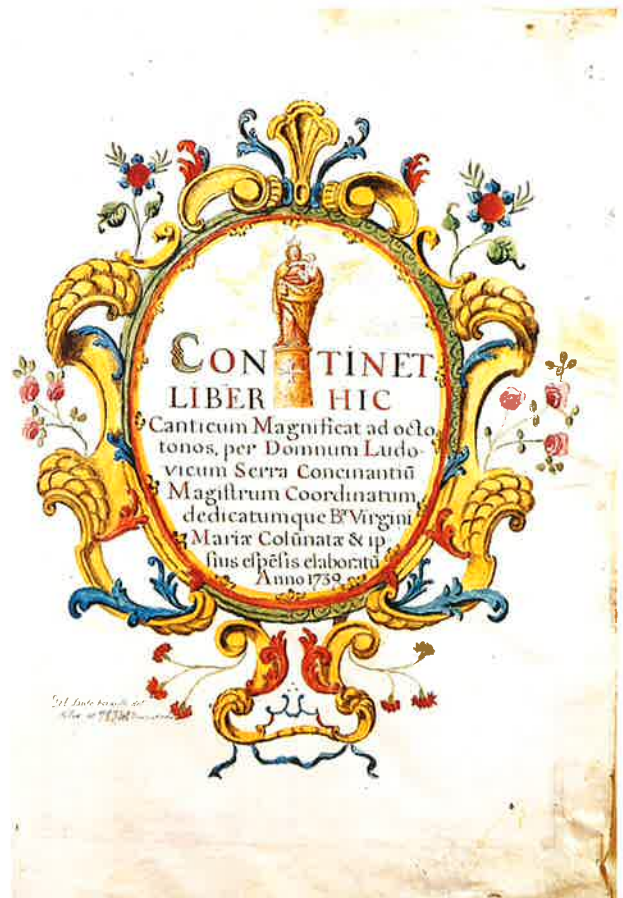 CONTINET
LIBER HIC
Canticum Magnificat ad octo
tonos, per Domnum Ludo-
vicum Serra Concinantiū
Magiſtrum Coordinatum
dedicatumque Bᵉ Virgini
Mariæ Colūnatæ & ip-
ſius eſpēſis elaboratū
Anno 1739